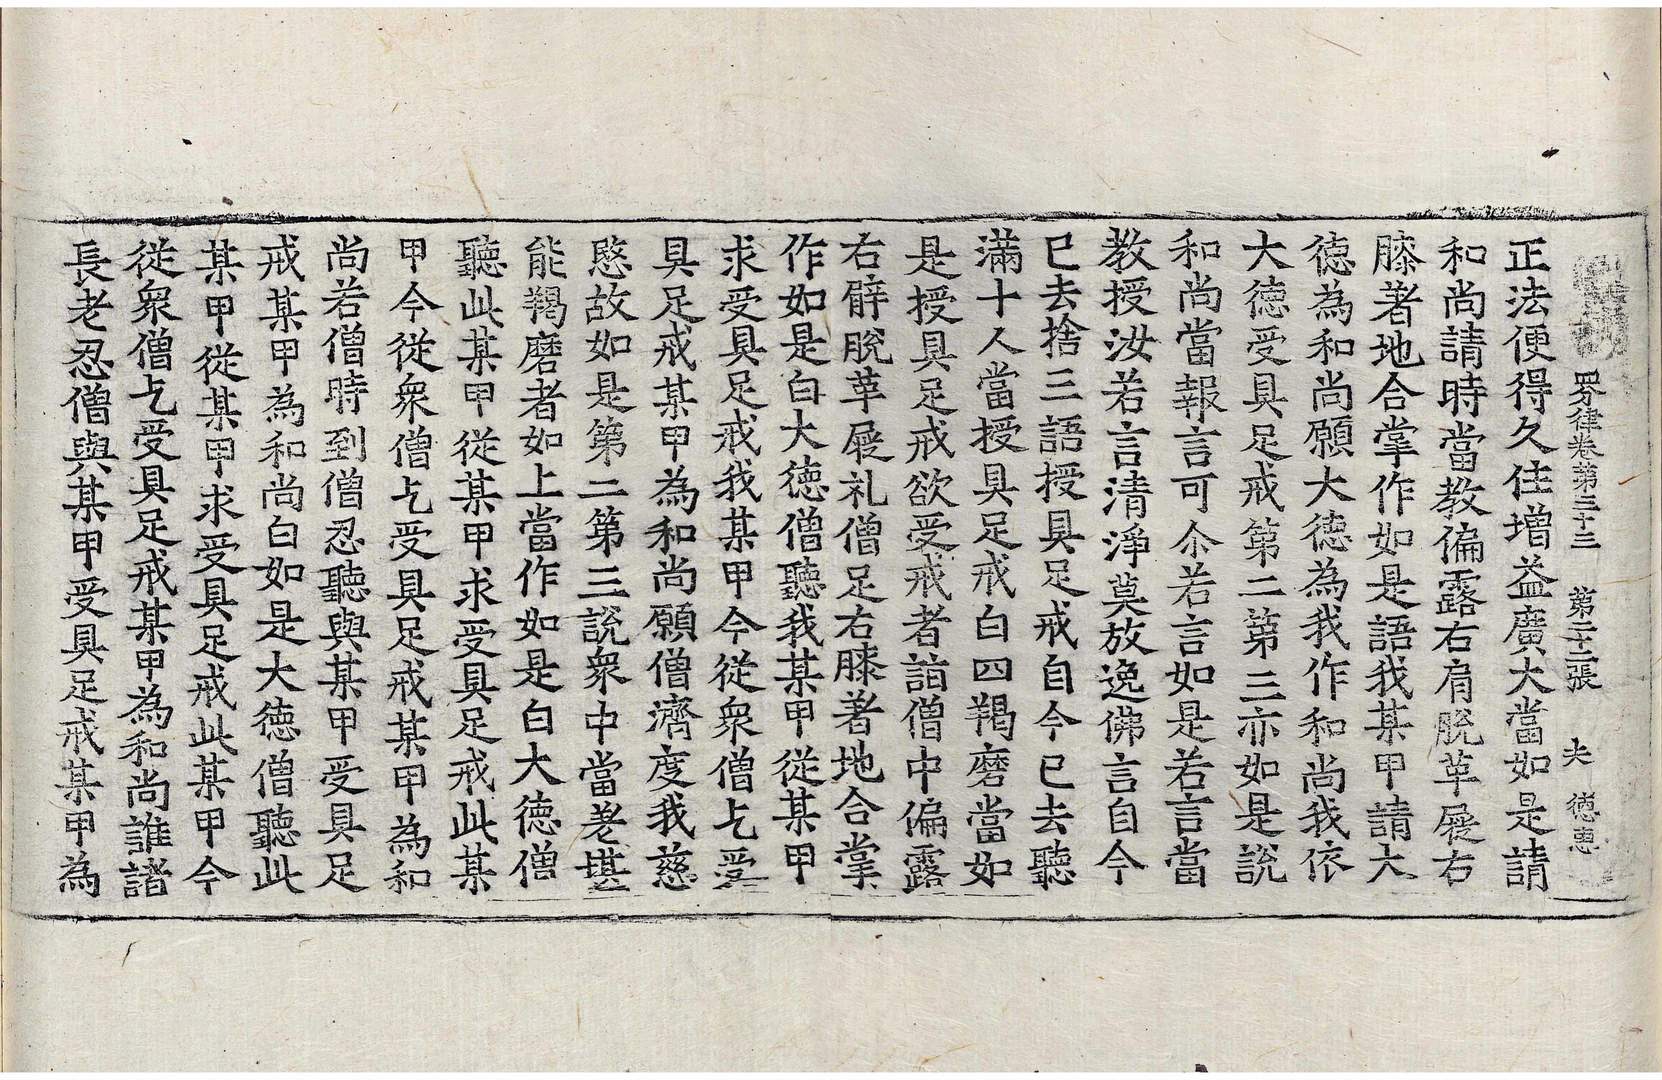 四分律卷第三十三 第二十二張 夫 徳惠
正法便得久住增益廣大當如是請
和尚請時當教偏露右肩脫革屣右
膝著地合掌作如是語我某甲請大
德為和尚願大德為我作和尚我依
大德受具足戒第二第三亦如是說
和尚當報言可尒若言如是若言當
教授汝若言清淨莫放逸佛言自今
已去捨三語授具足戒自今已去聽
滿十人當授具足戒白四羯磨當如
是授具足戒欲受戒者詣僧中偏露
右臂脫革屣礼僧足右膝著地合掌
作如是白大德僧聽我某甲從某甲
求受具足戒我某甲今從衆僧乞受
具足戒某甲為和尚願僧濟度我慈
愍故如是第二第三說衆中當差堪
能羯磨者如上當作如是白大德僧
聽此某甲從某甲求受具足戒此某
甲今從衆僧乞受具足戒某甲為和
尚若僧時到僧忍聽與某甲受具足
戒某甲為和尚白如是大德僧聽此
某甲從某甲求受具足戒此某甲今
從衆僧乞受具足戒某甲為和尚誰諸
長老忍僧與某甲受具足戒某甲為